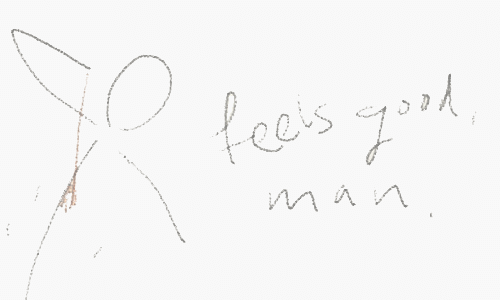 feels good,
man.